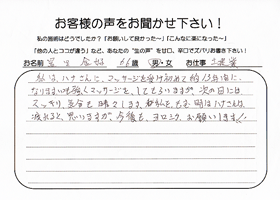 お客様の声をお聞かせ下さい！
私の施術はどうでしたか？「お願いして良かった～」「こんなに楽になった～」
「他の人とココが違う」など、あなたの“生の声”を甘口、辛口でズバリお書き下さい！
お名前 66歳 男・女 お仕事 土建業
私は、ハナさんに、マッサージを受け初めて約13年位に
なりますが、強くマッサージを、してもらいますが、次の日には
スッキリ、気分も晴れてます。私も、
疲れると、思いますが、今後も、ヨロシクお願いします！